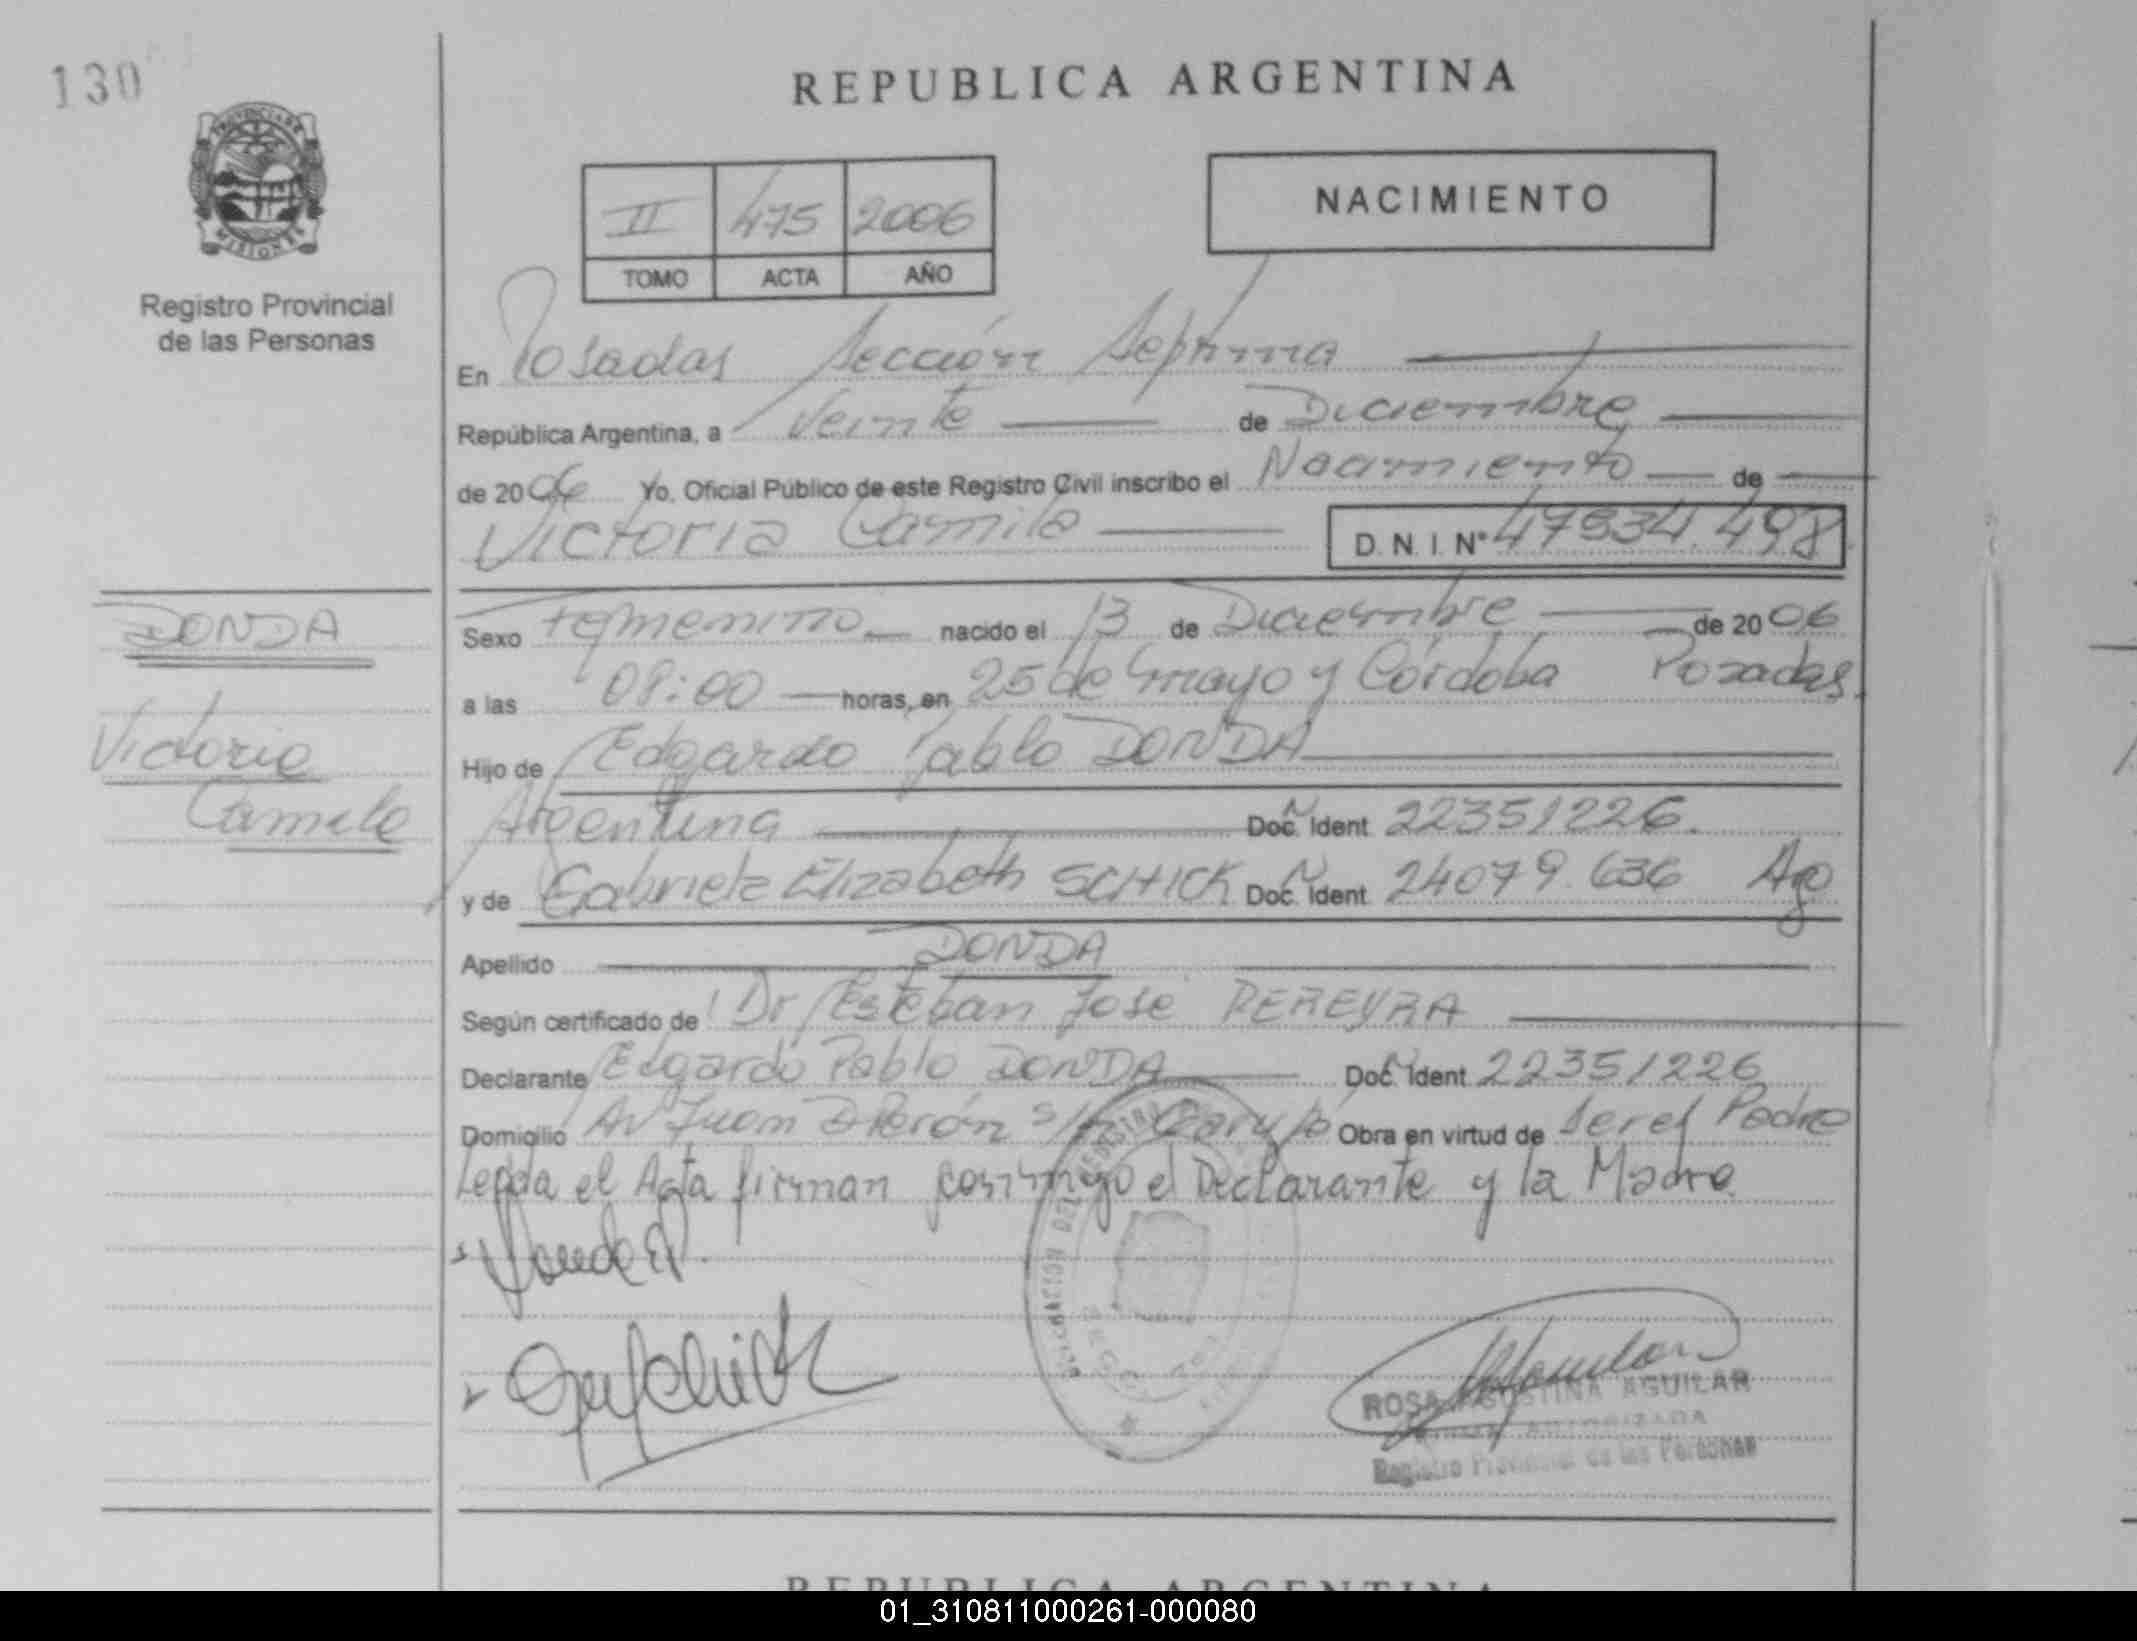 130
REPUBLICA ARGENTINA
PROVINCIA DE
MISIONES
II 475 2006
TOMO ACTA AÑO
NACIMIENTO
Registro Provincial
de las Personas
En Posadas Sección Septima
República Argentina, a Veinte de Diciembre
de 2006 Yo, Oficial Público de este Registro Civil inscribo el Nacimiento de
Victoria Camila D. N. I. Nº 47934.498
DONDA
Victoria
Camila
Sexo femenino nacido el 13 de Diciembre de 2006
a las 08:00 horas, en 25 de mayo y Córdoba Posadas.
Hijo de Edgardo Pablo DONDA
Argentina Doc. Ident 22351226.
y de Gabriela Elizabeth SCHICK Doc. Ident 24079.636 Ag
Apellido DONDA
Según certificado de Dr Esteban José PEREYRA
Declarante Edgardo Pablo DONDA Doc. Ident 22351226
Domicilio Av Juan D Perón s/n Obra en virtud de ser el Padre
Leida el Acta firman conmigo el Declarante y la Madre
ROSA AGUSTINA AGUILAR
AUTORIZADA
Registro Provincial de las Personas
REPUBLICA ARGENTINA
01_310811000261-000080